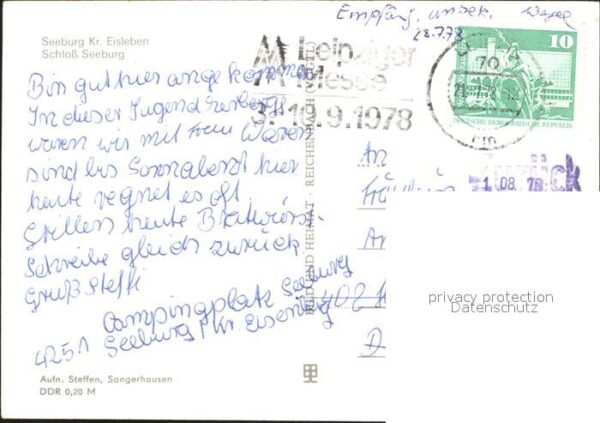 Empfäng. unbek.
28.7.78
Seeburg Kr. Eisleben
Schloß Seeburg
Leipziger
Messe
3.-10.9.1978
10
DEUTSCHE DEMOKRATISCHE REPUBLIK
70
Bin gut hier angekommen
In dieser Jugendherberge
waren wir mit Frau
sind bis Sonnabend hier
heute regnet es oft.
Grillen heute Bratwürst.
Schreibe gleich zurück
Gruß Steffi
Campingplatz Seeburg
4251 Seeburg / Kr. Eisleben
An
Fräulein
402
Zurück
-1.08.78
BILD UND HEIMAT REICHENBACH
privacy protection
Datenschutz
Aufn. Steffen, Sangerhausen
DDR 0,20 M